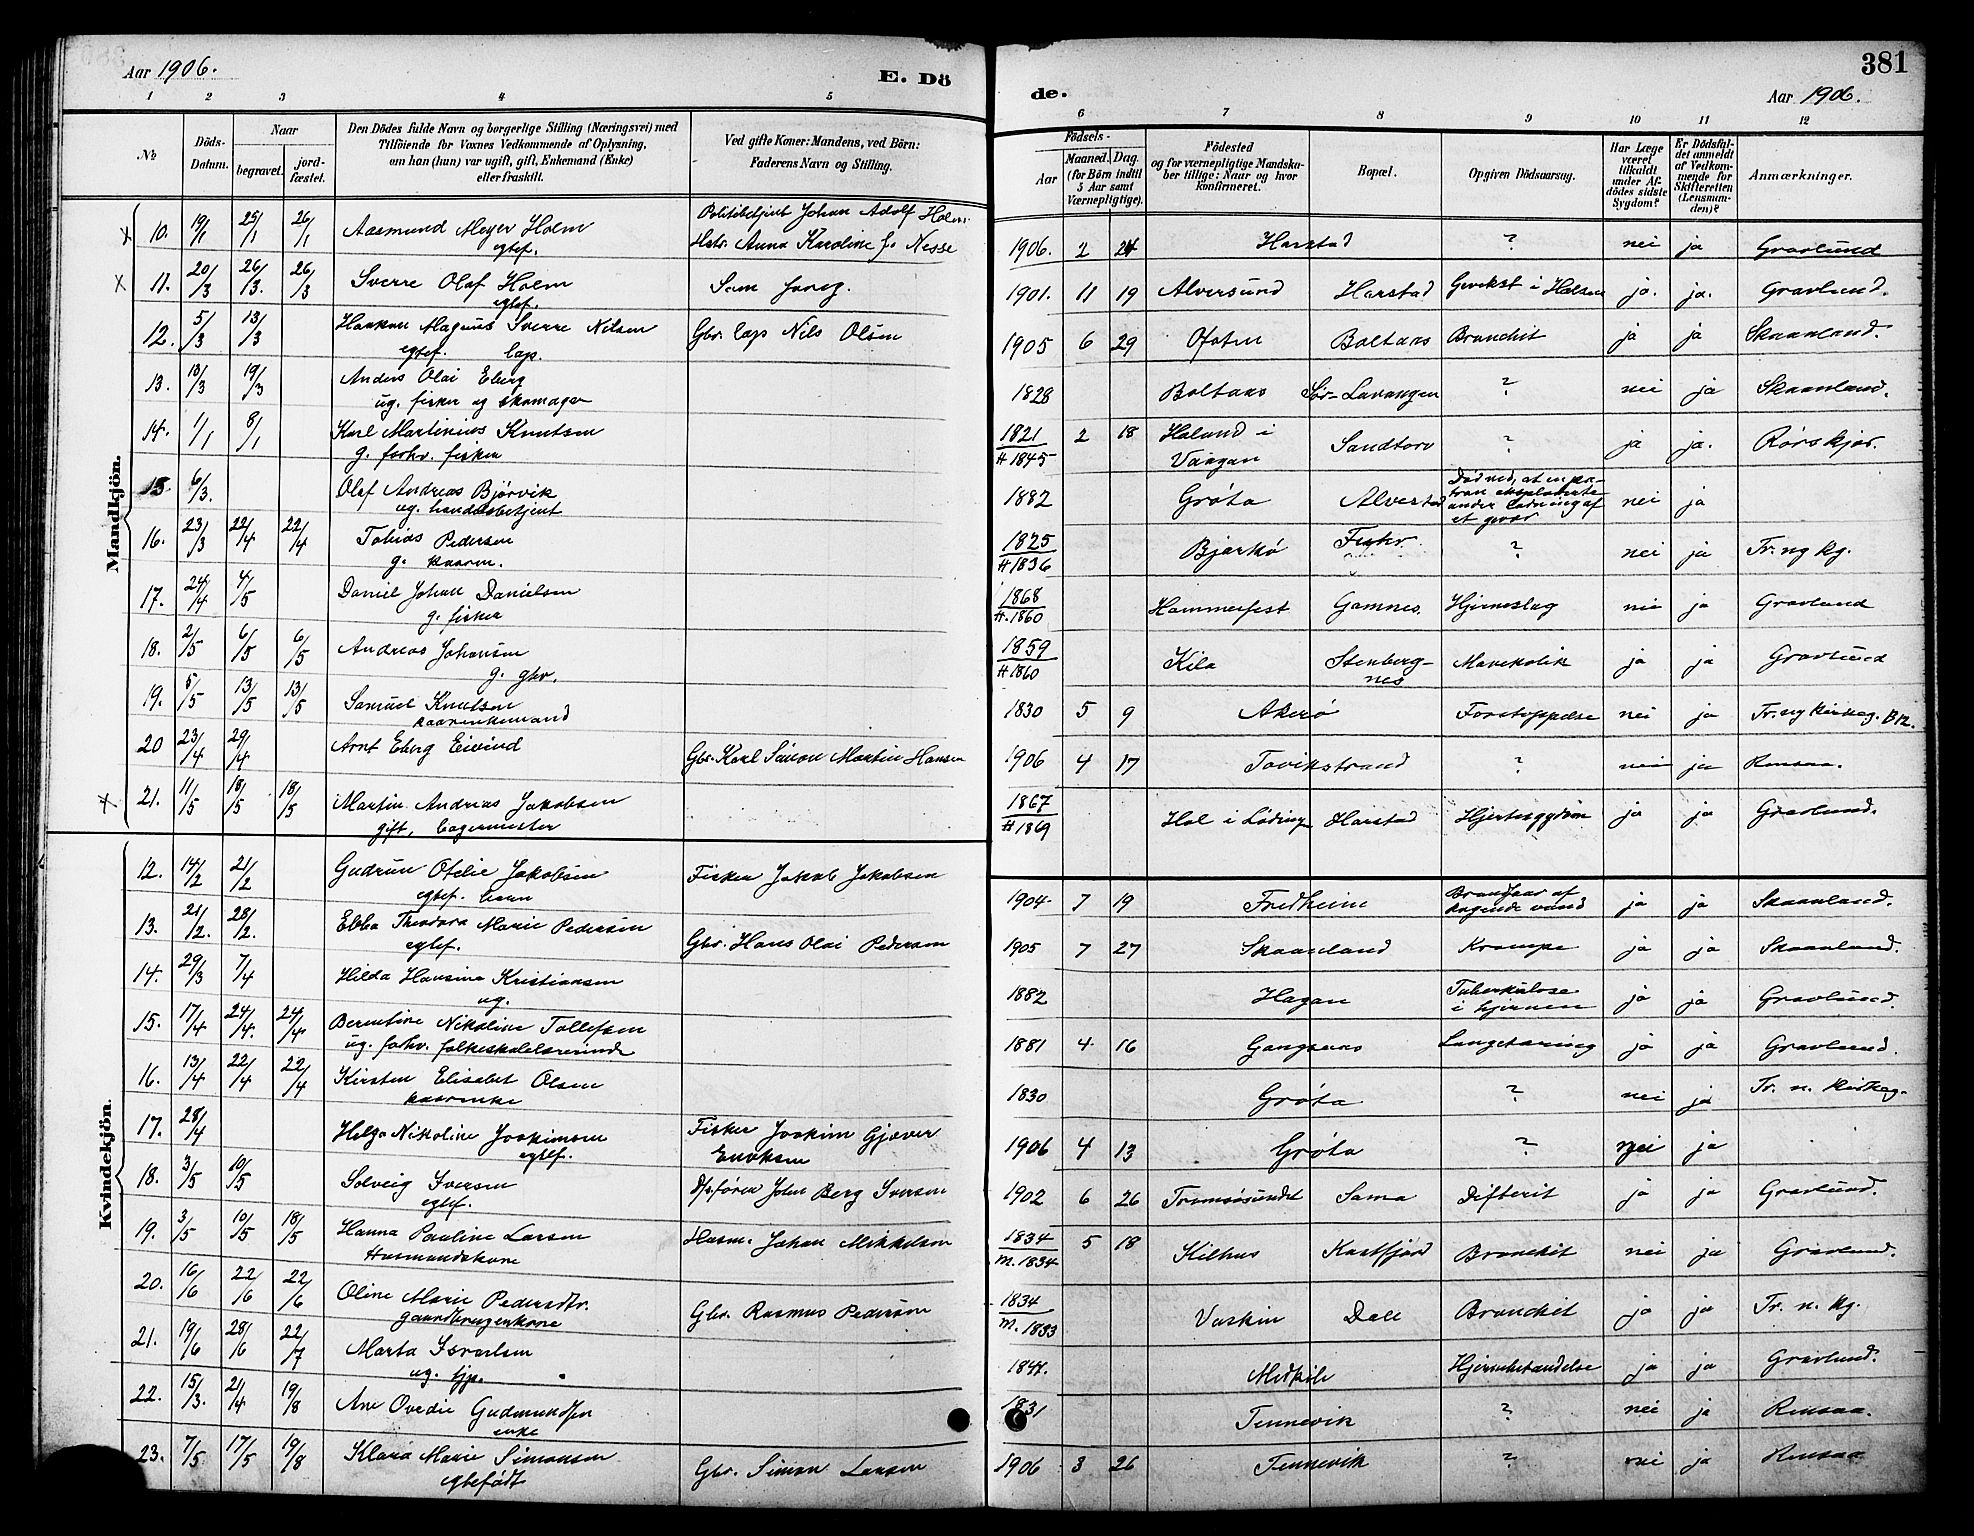 Aar 1906.
E. Dö
1 2 3 4 5
№
Döds-Datum.
Naar
begravet.
jord-fæstet.
Den Dödes fulde Navn og borgerlige Stilling (Næringsvei) med
Tilföiende for Voxnes Vedkommende af Oplysning,
om han (hun) var ugift, gift, Enkemand (Enke)
eller fraskilt.
Ved gifte Koner: Mandens, ved Börn:
Faderens Navn og Stilling.
Mandkjön.
10. 19/1 25/1 26/1 Aasmund Meyer Holm Politibetjent Johan Adolf Holm
egtef. Hstr. Anna Karoline f. Nesse
11. 20/3 26/3. 26/3 Sverre Olaf Holm Som foreg.
egtef.
12. 5/3 13/3 Haakon Magnus Sverre Nilsen Gbr. lap Nils Olsen
egtef. lap.
13. 13/3 19/3 Anders Olai Eberg
ug. fisker og skomager
14. 1/1 8/1 Karl Martinius Knutsen
g. forhv. fisker
15 6/3. Olaf Andreas Bjørvik
ug. handelsbetjent
16. 23/3 22/4 22/4 Tobias Pedersen
g. kaarm.
17. 24/4 4/5 Daniel Johan Danielsen
g. fisker
18. 2/5 6/5 6/5 Andreas Johansen
g. gbr.
19. 5/5 13/5 13/5 Samuel Knutsen
kaarenkemand
20 23/4 29/4 Arnt Eberg Eivind Gbr. Karl Simon Martin Hansen
21. 11/5 18/5 18/5 Martin Andreas Jakobsen
gift, bagermester
Kvindekjön.
12. 14/2 21/2 Gudrun Otelie Jakobsen Fisker Jakob Jakobsen
egtef. barn
13. 21/2. 28/2. Ebba Theodora Marie Pedersen Gbr. Hans Olai Pedersen
egtef.
14. 29/3 7/4 Hilda Hansine Kristiansen
ug.
15. 17/4 24/4. 24/4. Berentine Nikoline Tollefsen
ug. forhv. folkeskolelærerinde
16. 13/4 22/4 22/4 Kirsten Elisabet Olsen
kaarenke
17. 28/4 Helga Nikoline Joakimsen Fisker Joakim Gjæver
egtef. Enoksen
18. 3/5 10/5 Solveig Iversen Dpsfører John Berg Iversen
egtef.
19. 3/5 10/5 18/5 Hanna Pauline Larsen Husm. Johan Mikkelsen
Husmandskone
20. 16/6 22/6 22/6 Oline Marie Pedersdtr. Gbr. Rasmus Pedersen
gaardbrugerkone
21. 19/6 28/6 22/7 Marta Israelsen
ug. tjp.
22. 15/3. 21/4 19/8 Ane Ovedie Gudmundsen
enke
23. 7/5 17/5 19/8 Klara Marie Simonsen Gbr. Simon Larsen
egtefødt
381
de.
Aar 1906.
6 7 8 9 10 11 12
Födsels-
Aar
Maaned. Dag.
(for Börn indtil
5 Aar samt
Værnepligtige).
Födested
og for værnepligtige Mandska-
ber tillige: Naar og hvor
konfirmeret.
Bopæl.
Opgiven Dödsaarsag.
Har Læge
været
tilkaldt
under Af-
dödes sidste
Sygdom?
Er Dödsfal-
det anmeldt
af Vedkom-
mende for
Skifteretten
(Lensman-
den)?
Anmærkninger.
1906. 2 24 Harstad ? nei ja Gravlund
1901. 11 19 Alversund Harstad Gevekst i Halsen ja. ja. Gravlund.
1905 6 29 Ofoten Boltaas Bronchit ja ja Skaanland.
1828 Boltaas Sør-Lavangen ? nei ja Skaanland.
1821 2 18 Haland i Sandtorv ? ja ja. Rørskjær.
# 1845 Vaagan
1882 Grøta Alvestad Død ved, at en pa-
tron eksploderte
under ladning af
et gevær nei ja
1825 Bjarkö ? nei ja Tr. ny kg.
# 1836
1868 Hammerfest Gamnes. Hjerneslag nei ja Gravlund
#. 1860
1859 Kila Stenberg-
nes Mavekolik ja ja Gravlund
# 1860
1830 5 9 Akerø Forstoppelse nei ja Tr. ny kirkeg.
1906 4 17 Tovikstrand ? nei ja Rensaa.
1867 Hol i Lødingen Harstad Hjertesygdom ja ja Gravlund.
# 1869
1904. 7 19 Fredheim Brandsaar af
kogende vand ja ja Skaanland.
1905 7 27 Skaanland Krampe ja ja Skaanland.
1882 Hagan Tuberkulose
i hjernen ja ja Gravlund.
1881 4. 16 Gangsaas Lungetæring ja ja Gravlund.
1830 Grøta ? nei ja Tr. n. kirkeg.
1906 4 13 Grøta ? nei ja
1902 6 26 Tromsøsundet Sama Difterit ja ja Gravlund.
1834 5 18 Kilhus Kastfjord Bronchit nei ja Gravlund.
m. 1834
1834 Vaskin Dale Bronchit ja ja Tr. n. kg.
m. 1833
184. Medkile Hjernebetændelse ja ja Gravlund.
1831 Tennevik ? nei ja Rensaa.
1906 3 26 Tennevik ? nei ja Rensaa